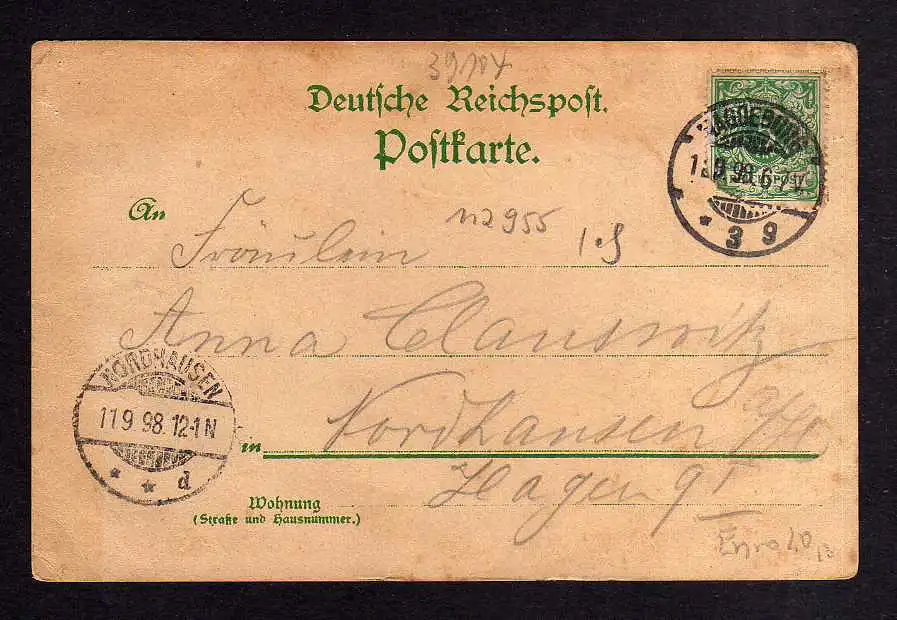 39104
Deutsche Reichspost.
Postkarte.
MAGDEBURG
9.98.6-7
* 3 9
An
112955
Fräulein
Anna Clauswitz
NORDHAUSEN
11.9.98.12-1N
* * d
in Nordhausen
Hagen
Wohnung
(Straße und Hausnummer.)